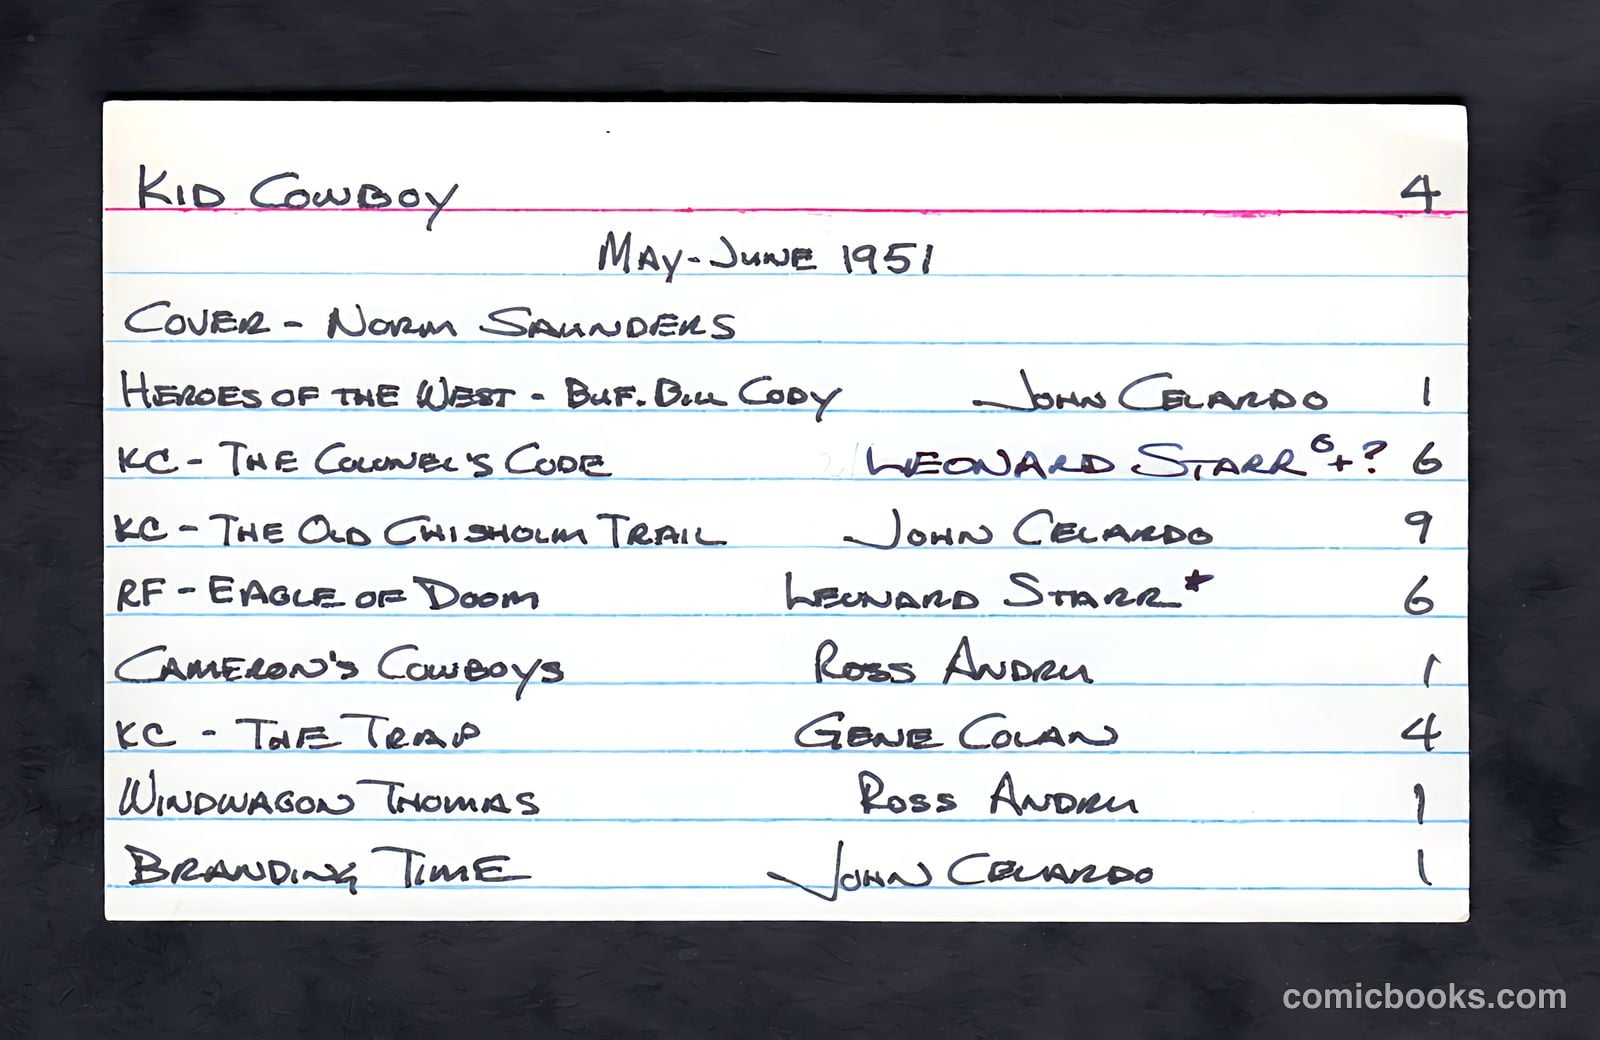 KID COWBOY 4
MAY-JUNE 1951
COVER - NORM SAUNDERS
HEROES OF THE WEST - BUF. BILL CODY JOHN CELARDO 1
KC - THE COLONEL'S CODE LEONARD STARR G+? 6
KC - THE OLD CHISHOLM TRAIL JOHN CELARDO 9
RF - EAGLE OF DOOM LEONARD STARR* 6
CAMERON'S COWBOYS ROSS ANDRU 1
KC - THE TRAP GENE COLAN 4
WINDWAGON THOMAS ROSS ANDRU 1
BRANDING TIME JOHN CELARDO 1
comicbooks.com